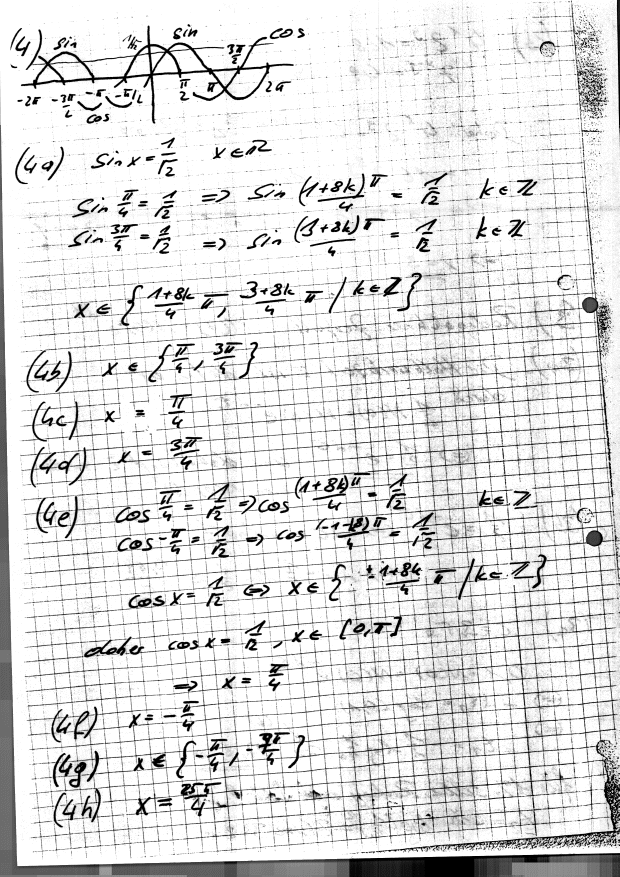 (4) sin 1/√2 sin 3π/2 cos
-2π -3π/2 -π -π/2 π/2 π 2π
cos
(4a) sin x = 1/√2 x ∈ ℝ
sin π/4 = 1/√2 => sin (1+8k)π/4 = 1/√2 k ∈ ℤ
sin 3π/4 = 1/√2 => sin (3+8k)π/4 = 1/√2 k ∈ ℤ
x ∈ { 1+8k/4 π, 3+8k/4 π / k ∈ ℤ }
(4b) x ∈ { π/4, 3π/4 }
(4c) x = π/4
(4d) x = 3π/4
(4e) cos π/4 = 1/√2 => cos (1+8k)π/4 = 1/√2 k ∈ ℤ
cos -π/4 = 1/√2 => cos (-1-8k)π/4 = 1/√2
cos x = 1/√2 <=> x ∈ { ± 1+8k/4 π / k ∈ ℤ }
daher cos x = 1/√2, x ∈ [0, π]
=> x = π/4
(4f) x = -π/4
(4g) x ∈ { -π/4, }
(4h) x =